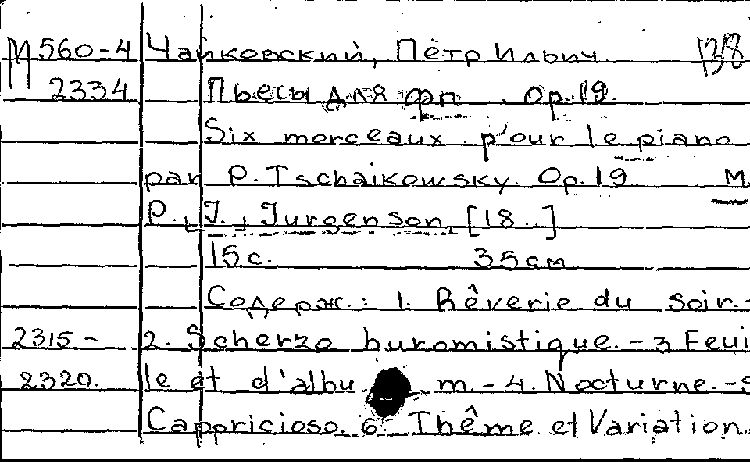 М 560-4 Чайковский, Пётр Ильич 138
2334 Пьесы для фп. Op. 19.
Six morceaux pour le piano
par P. Tschaikowsky. Op. 19 M
P., J., Jurgenson, [18..]
15 с. 35 см
Содерж.: 1. Rêverie du soir.-
2315- 2. Scherzo huromistique. - 3 Feui
2320. le et d'albu m. - 4. Nocturne. - 5
Capricioso. 6. Thême et Variation.